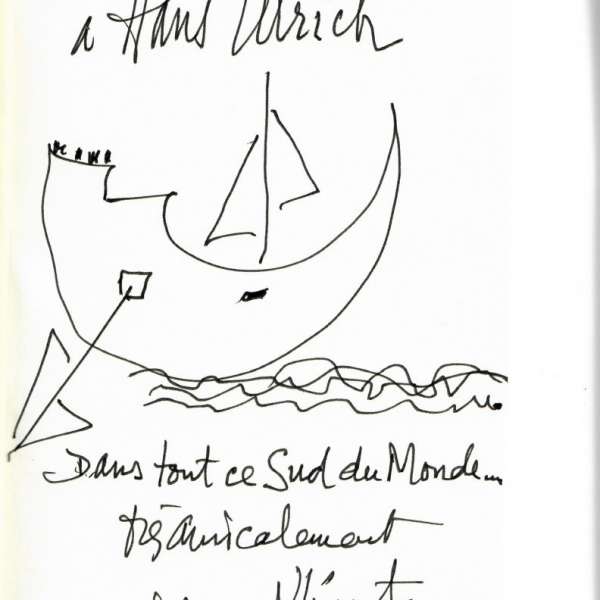 à Hans Ulrich
Dans tout ce Sud du Monde...
très amicalement